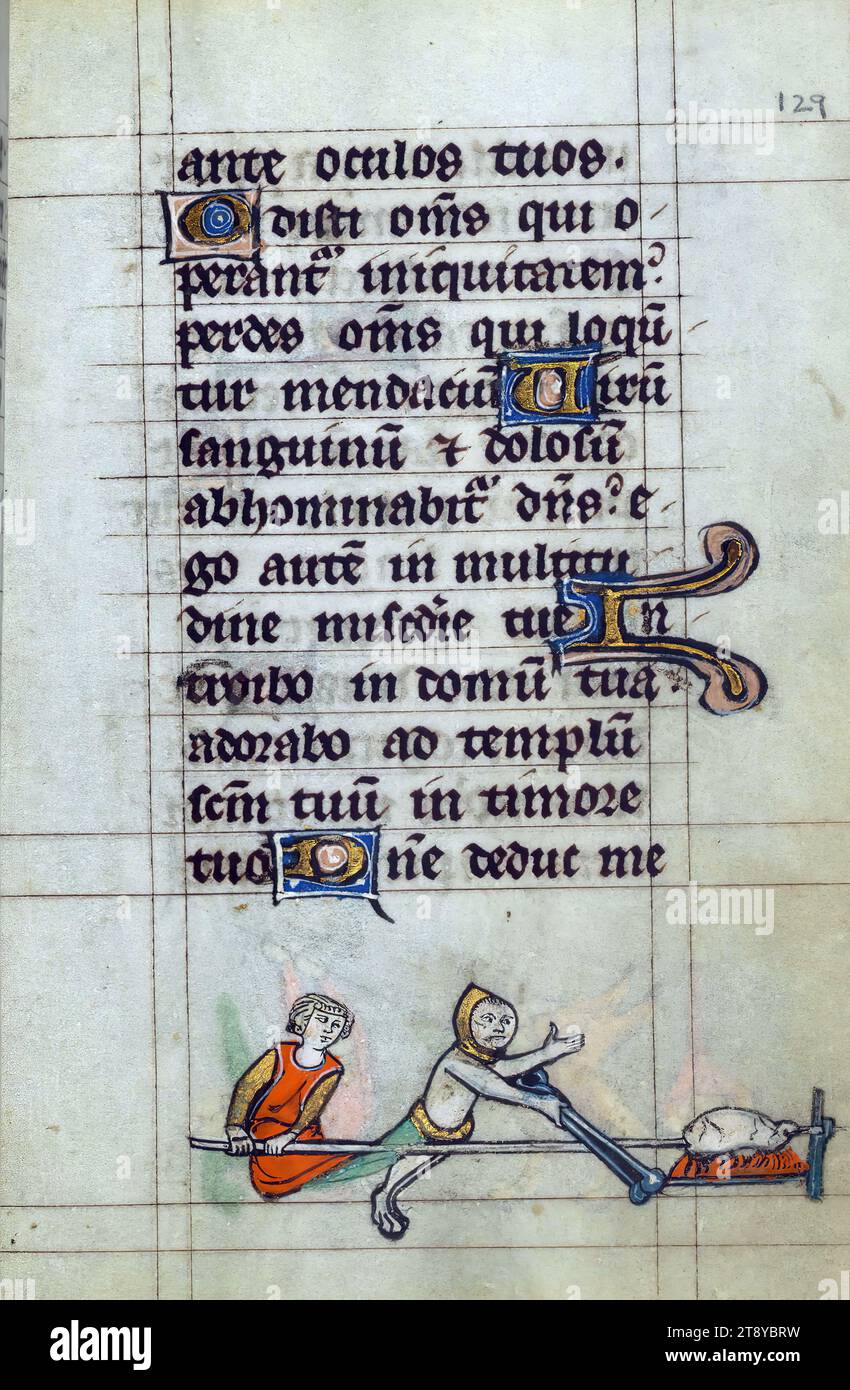 129
ante oculos tuos.
Odisti om̄s qui o
perant᷑ iniquitatem?
perdes om̄s qui loqū
tur mendaciū Uirū
sanguinū ⁊ dolosū
abhominabit᷑ dn̄s? e
go autē in multitu
dine misc̄die tue In
troibo in domū tua
adorabo ad templū
scm̄ tuū in timore
tuo Dn̄e deduc me
alamy
Image ID: 2T8YBRW
www.alamy.com